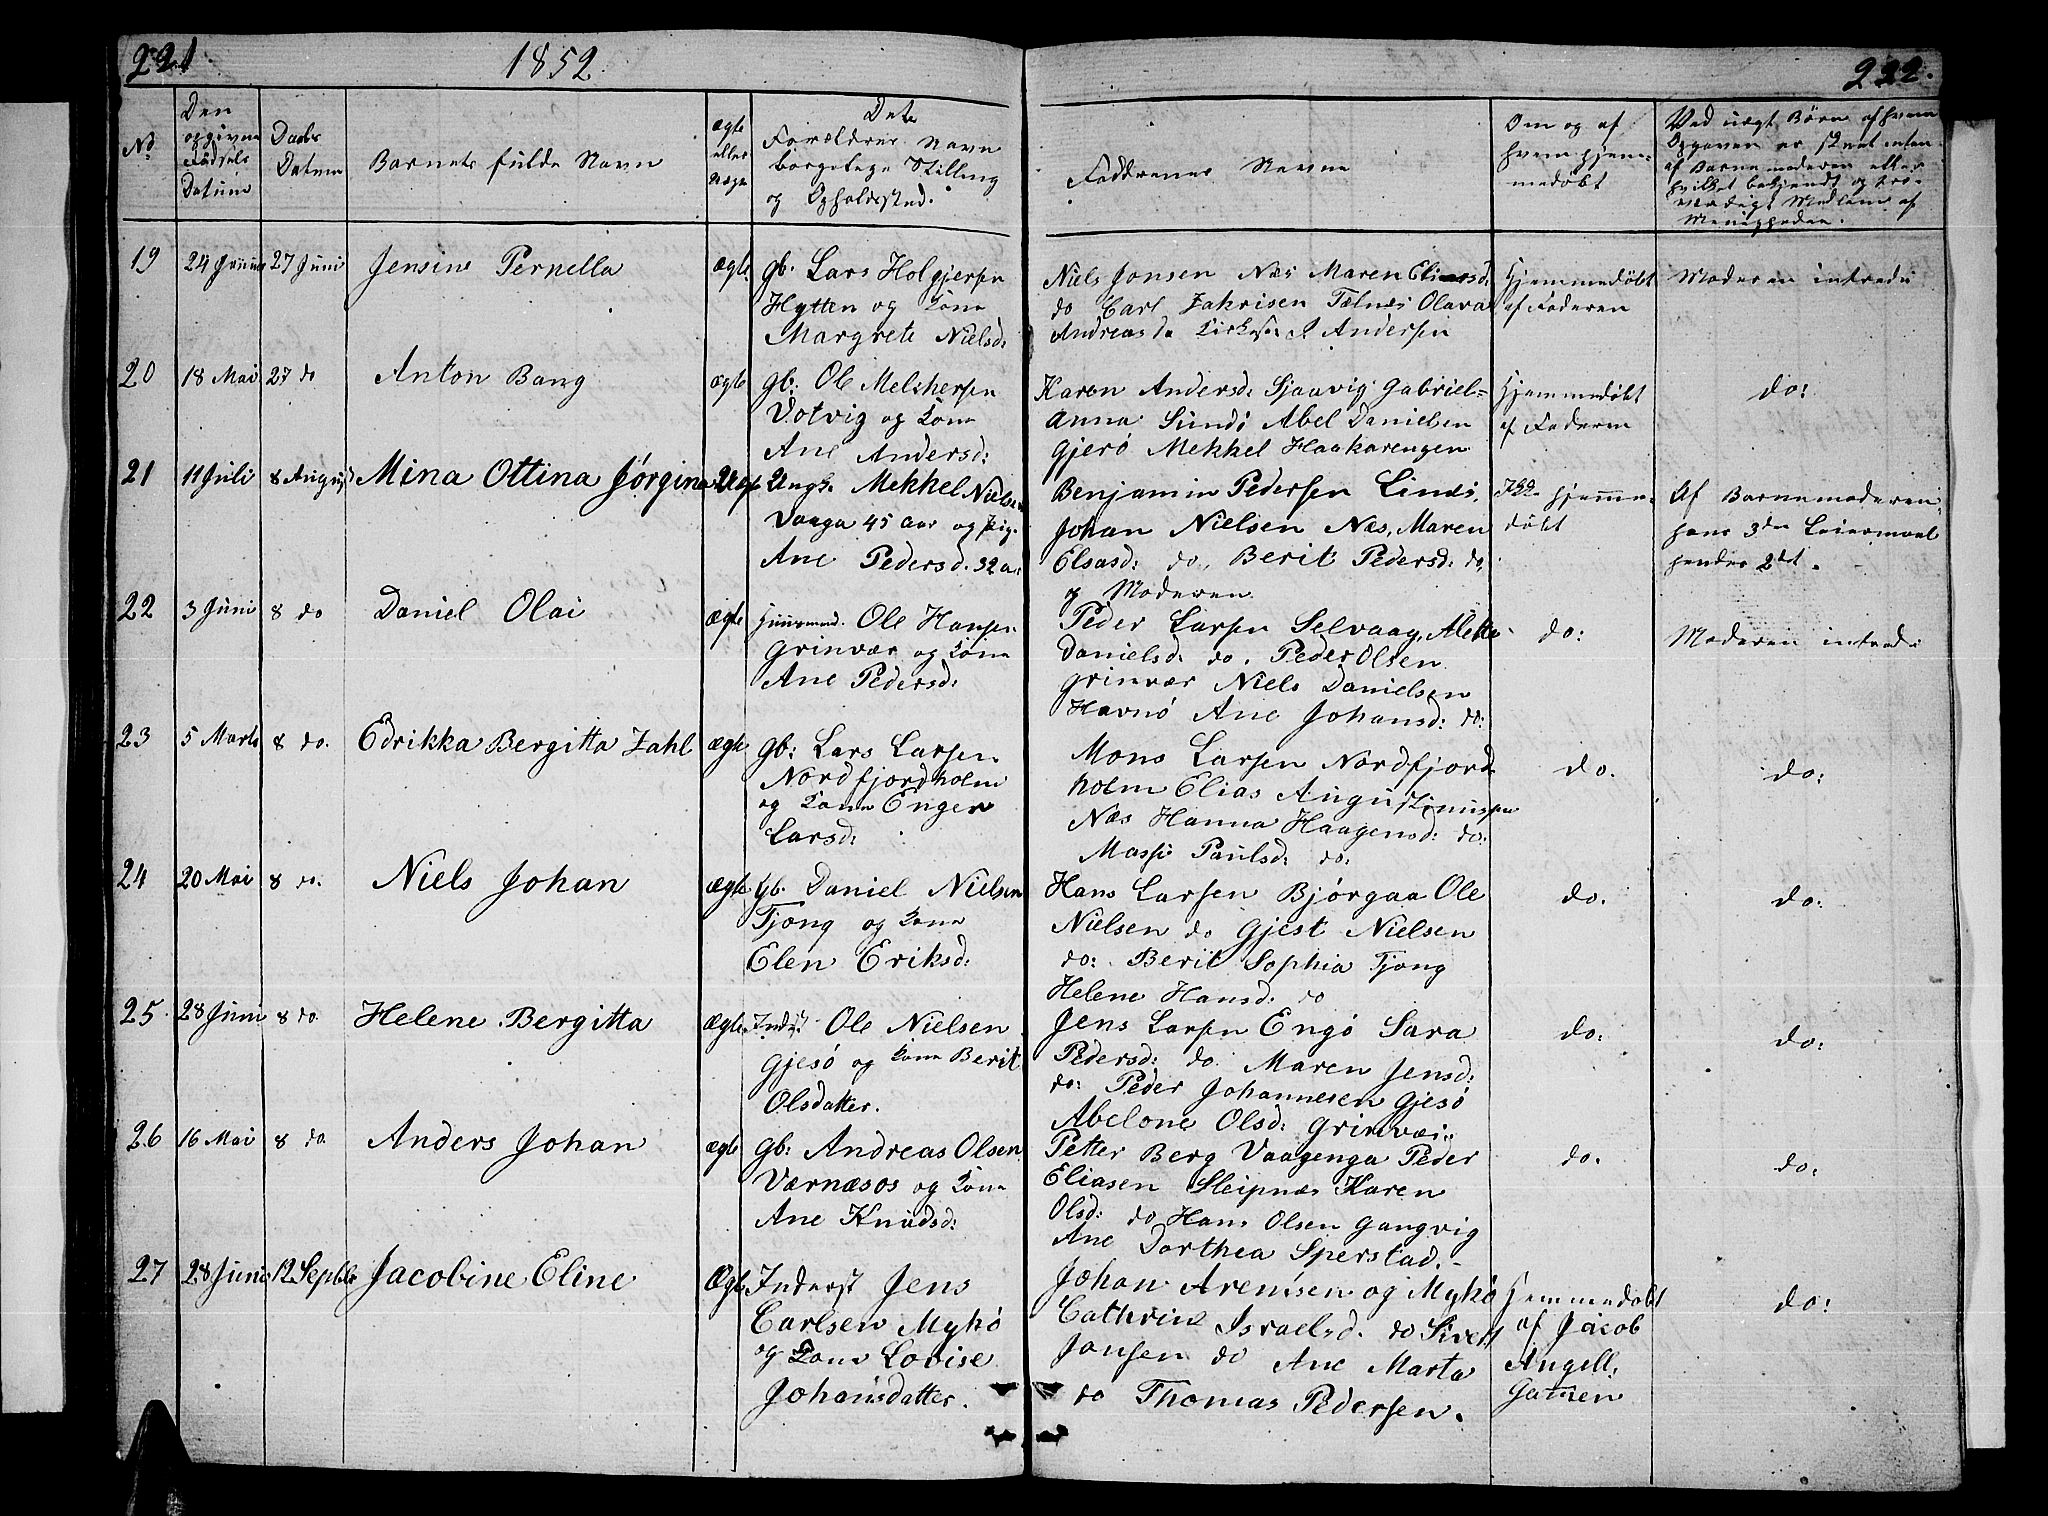 221
1852
222.
No
Den
opgivne
Fødsels
Datum
Daabs
Datum
Barnets fulde Navn
ægte
eller
uægte
Dets
Forældres Navn
borgelege Stilling
og Opholdssted.
Faddrenes Navne
Om og af
hvem hjem-
medøbt
Ved uægt Børn af hvem
Opgaven er skeet enten
af Barnemoderen eller
hvilket bekjendt og tro-
værdigt Medlem af
Menigheden.
19
24 Junii
27 Juni
Jensine Pernella
ægte
gb. Lars Holgjersen
Hytten og Kone
Margrete Nielsd:
Niels Jonsen Næs Maren Eliasd:
do Carl Zakrisen Tælnæs Olava
Andreasda A Andersen
Hjemmedøbt
af Faderen
Moderen introd:
20
18 Mai
27 do
Anton Bang
ægte
gb: Ole Melchersen
Votvig og Kone
Ane Andersd:
Karen Andersd: Sjaavig Gabriel=
Anna Sundø Abel Danielsen
Gjerø Mekkel Haakarengen
Hjemmedøbt
af Faderen
do:
21
11 Juli
8 August
Mina Ottina Jørgina
Uægt
Ungk. Mekkel Nielsen
Vaaga 45 aar og pig.
Ane Pedersd. 32 a:
Benjamin Pedersen Linds,
Johan Nielsen Næs, Maren
Elsasd: do, Berit Pedersd: do,
og Moderen
Ikke hjemme-
døbt
Af Barnemoderen
hans 3die Leiermaal
hendes 2det.
22
3 Juni
8 do
Daniel Olai
ægte
Huusmand. Ole Hansen
Grinvær og Kone
Ane Pedersd:
Peder Larsen Selvaag, Alette
Danielsd: do, Peder Olsen
Grinvær Niels Danielsen
Havnø Ane Johansd: do:
do:
Moderen introd:
23
5 Marts
8 do.
Edrikka Bergitta Zahl
ægte
gb: Lars Larsen
Nordfjordholm
og Kone Enger
Larsd:
Mons Larsen Nordfjord
holm Elias Augustinussen
Næs Hanna Haagensd: do:
Massi Paulsd: do:
do.
do:
24
20 Mai
8 do.
Niels Johan
ægte
Gb. Daniel Nielsen
Tjong og Kone
Elen Eriksd:
Hans Larsen Bjørgaa Ole
Nielsen do Gjest Nielsen
do: Berit Sophia Tjong
Helene Hansd: do
do.
do:
25.
28 Juni
8 do
Helene Bergitta
Ægte
Inderst Ole Nielsen
Gjesø og Kone Berit
Olsdatter.
Jens Larsen Engø Sara
Pedersd: do Maren Jensd:
do: Peder Johannesen Gjesø
Abelone Olsd: Grinvær
do:
do:
26
16 Mai
8 do
Anders Johan
ægte
gb: Andreas Olsen
Værnæsos og Kone
Ane Knudsd:
Petter Berg Vaagenga Peder
Eliasen Sleipnæs Karen
Olsd: do Hans Olsen Gangvig
Ane Dorthea Sperstad.
do.
do:
27
28 Juni
12 Septbr
Jacobine Eline
Ægte
Inderst Jens
Carlsen Mykø
og Kone Lovise
Johansdatter.
Johan Arentsen og Mykø
Cathrine Israelsd. do Sivert
Jonsen do Ane Marta
do Thomas Pedersen.
Hjemmedøbt
af Jacob
Angell,
do: